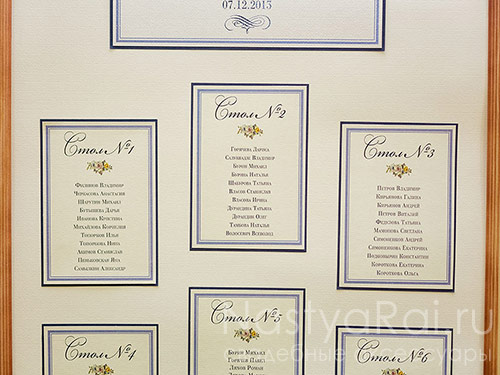 07.12.2013
Стол №1
Филинов Владимир
Черкасова Анастасия
Шарутин Михаил
Бутышева Дарья
Иванова Кристина
Михайлова Корнелия
Топоршов Илья
Топоршова Нина
Акимов Станислав
Пеньковская Яна
Самылкин Александр
Стол №2
Горячева Лариса
Саловьядзе Владимир
Боров Михаил
Борова Наталья
Шаверова Татьяна
Власов Станислав
Власова Ирина
Дерандина Татьяна
Дерандин Олег
Танкова Наталья
Волосевич Всеволод
Стол №3
Петров Владимир
Кирьянова Галина
Кирьянов Андрей
Петров Виталий
Федеева Татьяна
Мамонтова Светлана
Симоненков Андрей
Симоненкова Екатерина
Подвойский Константин
Короткова Екатерина
Короткова Ольга
Стол №4
Стол №5
Боров Михаил
Горячев Павел
Ляхов Роман
Стол №6
NastyaRai.ru